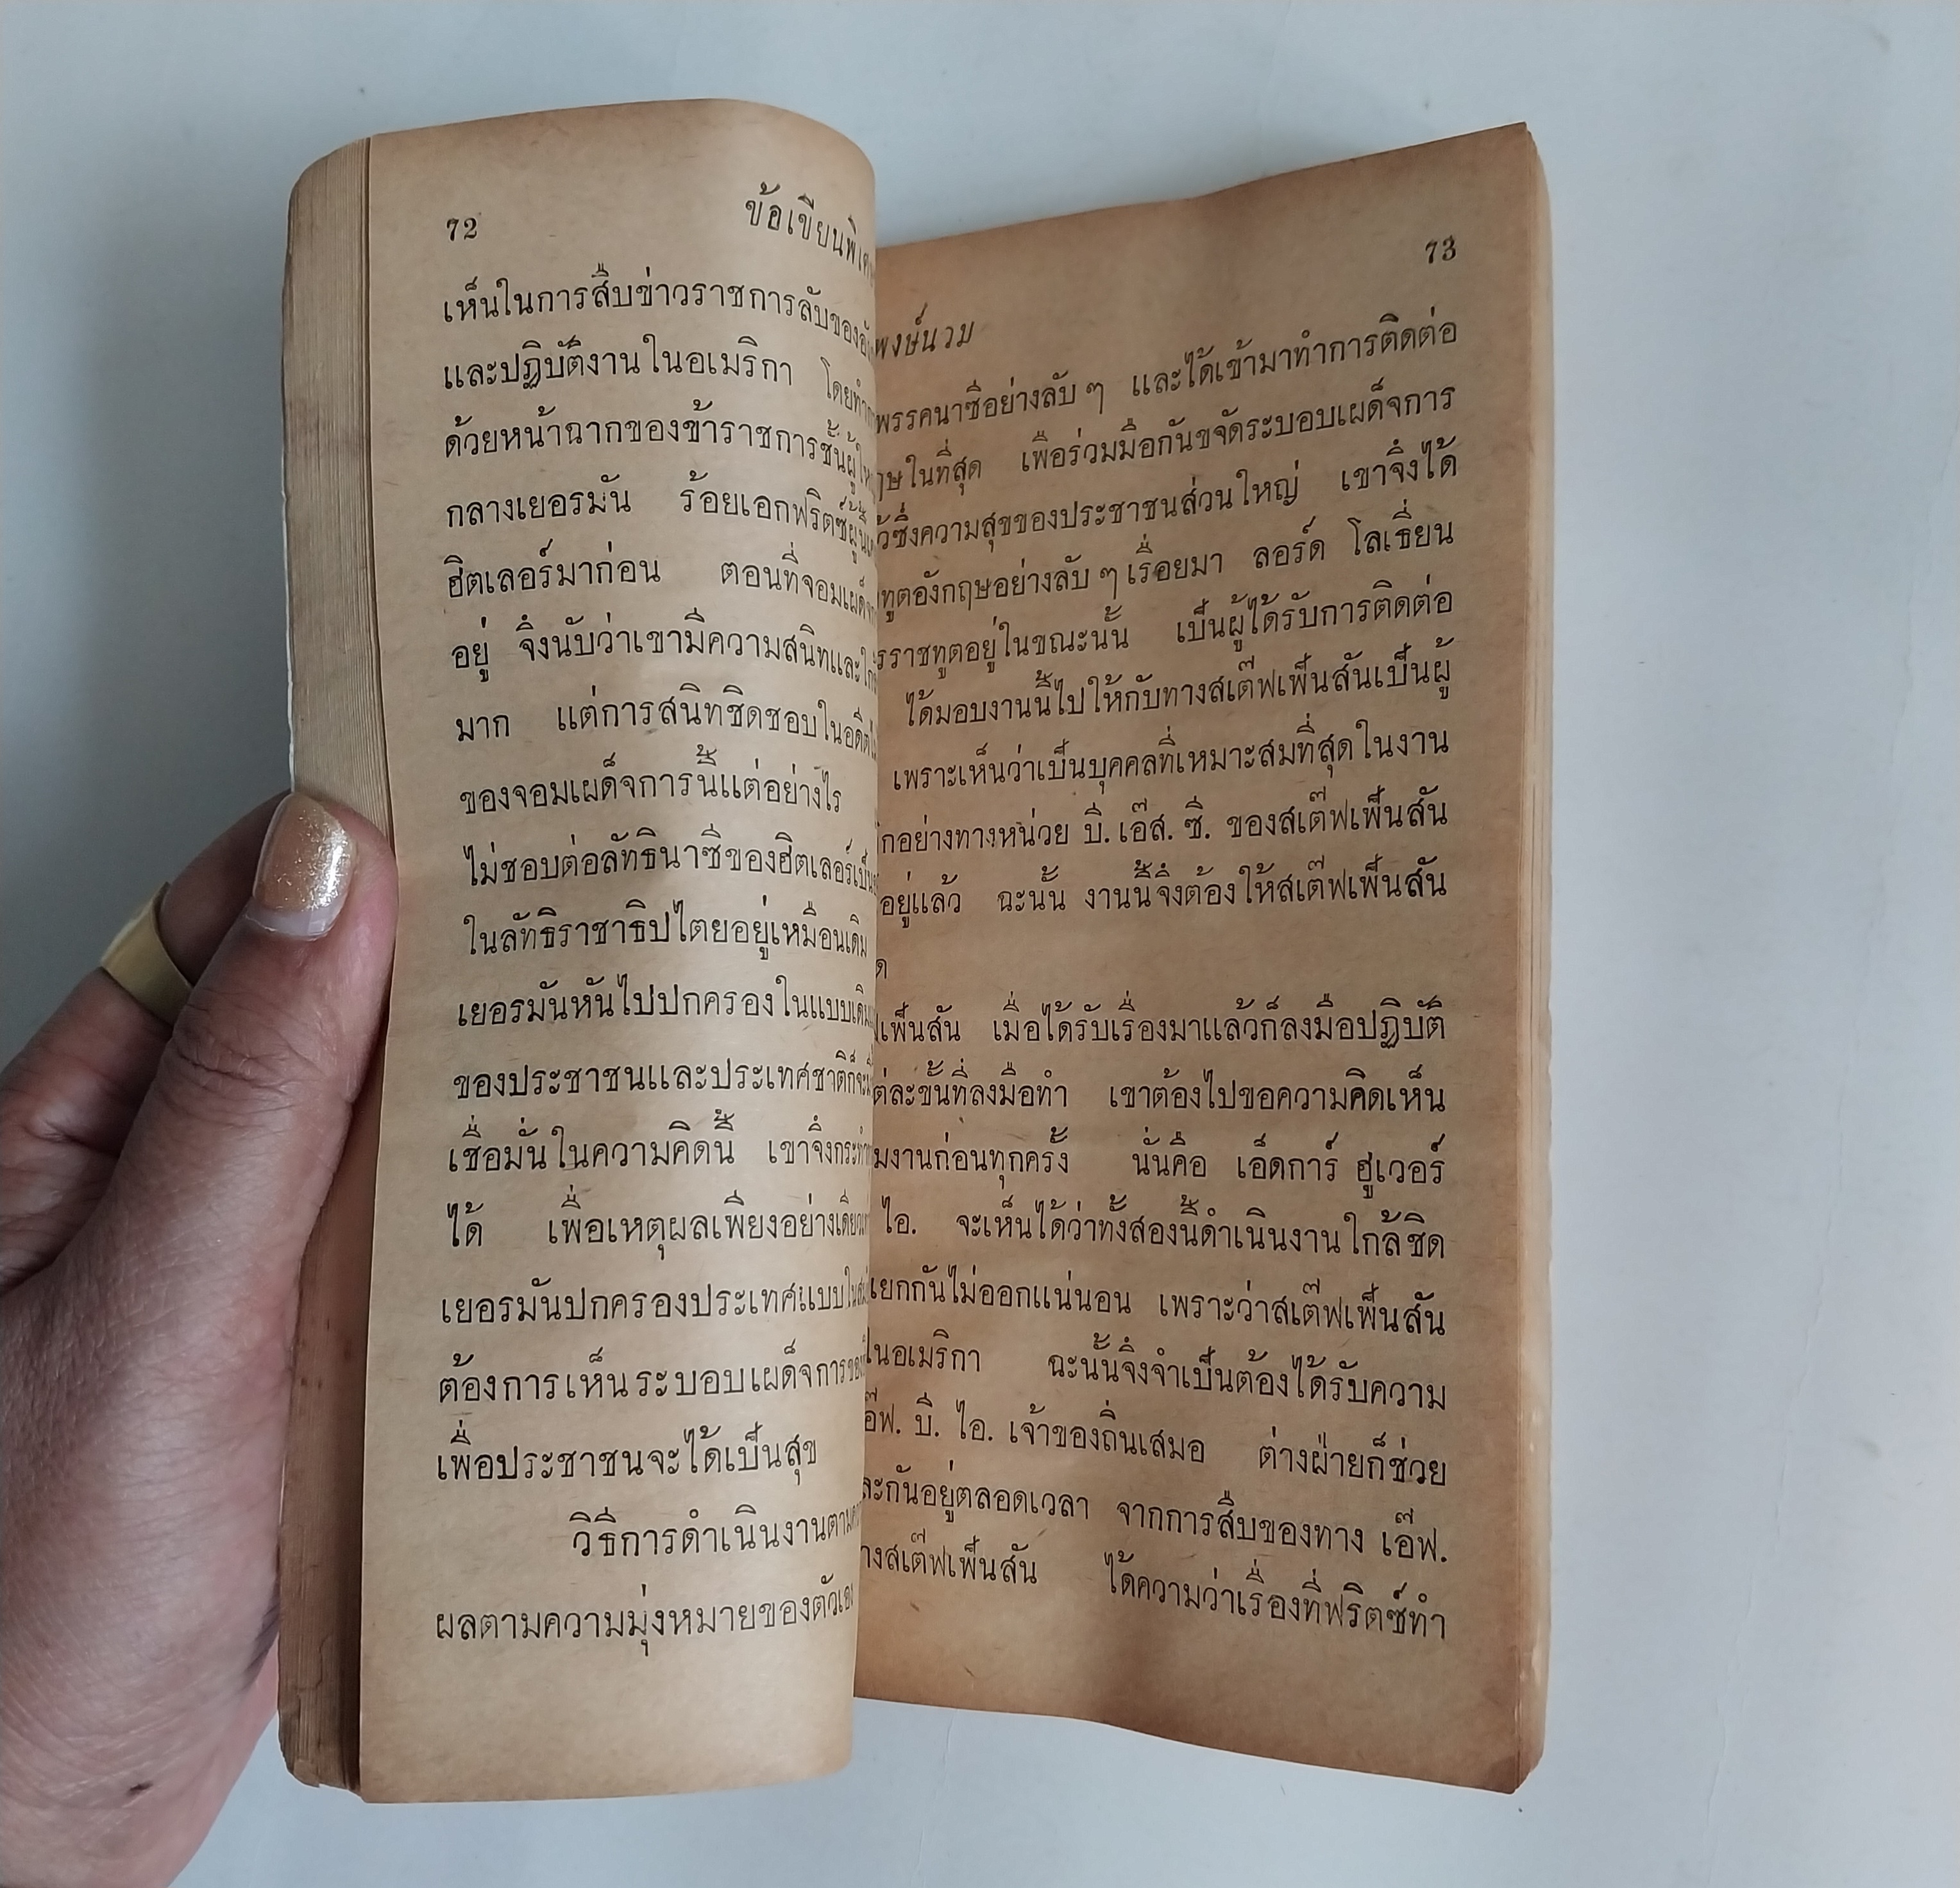 72
ข้อเขียนพิเศษ
เห็นในการสืบข่าวราชการลับของ
และปฏิบัติงานในอเมริกา โดยทำ
ด้วยหน้าฉากของข้าราชการชั้นผู้ให
กลางเยอรมัน ร้อยเอกฟริตซ์ผู้นี้
ฮิตเลอร์มาก่อน ตอนที่จอมเผด็จ
อยู่ จึงนับว่าเขามีความสนิทและใก
มาก แต่การสนิทชิดชอบในอดีต
ของจอมเผด็จการนี้แต่อย่างไร
ไม่ชอบต่อลัทธินาซีของฮิตเลอร์เป็น
ในลัทธิราชาธิปไตยอยู่เหมือนเดิม
เยอรมันหันไปปกครองในแบบเดิม
ของประชาชนและประเทศชาติก็จะ
เชื่อมั่นในความคิดนี้ เขาจึงกระทำ
ได้ เพื่อเหตุผลเพียงอย่างเดียว
เยอรมันปกครองประเทศแบบใน
ต้องการเห็นระบอบเผด็จการของ
เพื่อประชาชนจะได้เป็นสุข
วิธีการดำเนินงานตาม
ผลตามความมุ่งหมายของตัวเอง
73
พงษ์นวม
พรรคนาซีอย่างลับ ๆ และได้เข้ามาทำการติดต่อ
ฤษในที่สุด เพื่อร่วมมือกันขจัดระบอบเผด็จการ
ซึ่งความสุขของประชาชนส่วนใหญ่ เขาจึงได้
ทูตอังกฤษอย่างลับ ๆ เรื่อยมา ลอร์ด โลเธี่ยน
รราชทูตอยู่ในขณะนั้น เป็นผู้ได้รับการติดต่อ
ได้มอบงานนี้ไปให้กับทางสเต๊ฟเฟิ้นสันเป็นผู้
เพราะเห็นว่าเป็นบุคคลที่เหมาะสมที่สุดในงาน
กอย่างทางหน่วย บี. เอ๊ส. ซี. ของสเต๊ฟเฟิ้นสัน
อยู่แล้ว ฉะนั้น งานนี้จึงต้องให้สเต๊ฟเฟิ้นสัน
ด
เฟิ้นสัน เมื่อได้รับเรื่องมาแล้วก็ลงมือปฏิบัติ
ต่ละขั้นที่ลงมือทำ เขาต้องไปขอความคิดเห็น
มงานก่อนทุกครั้ง นั่นคือ เอ็ดการ์ ฮูเวอร์
ไอ. จะเห็นได้ว่าทั้งสองนี้ดำเนินงานใกล้ชิด
แยกกันไม่ออกแน่นอน เพราะว่าสเต๊ฟเฟิ้นสัน
ในอเมริกา ฉะนั้นจึงจำเป็นต้องได้รับความ
เอ๊ฟ. บี. ไอ. เจ้าของถิ่นเสมอ ต่างฝ่ายก็ช่วย
ละกันอยู่ตลอดเวลา จากการสืบของทาง เอ๊ฟ.
างสเต๊ฟเฟิ้นสัน ได้ความว่าเรื่องที่ฟริตซ์ทำ